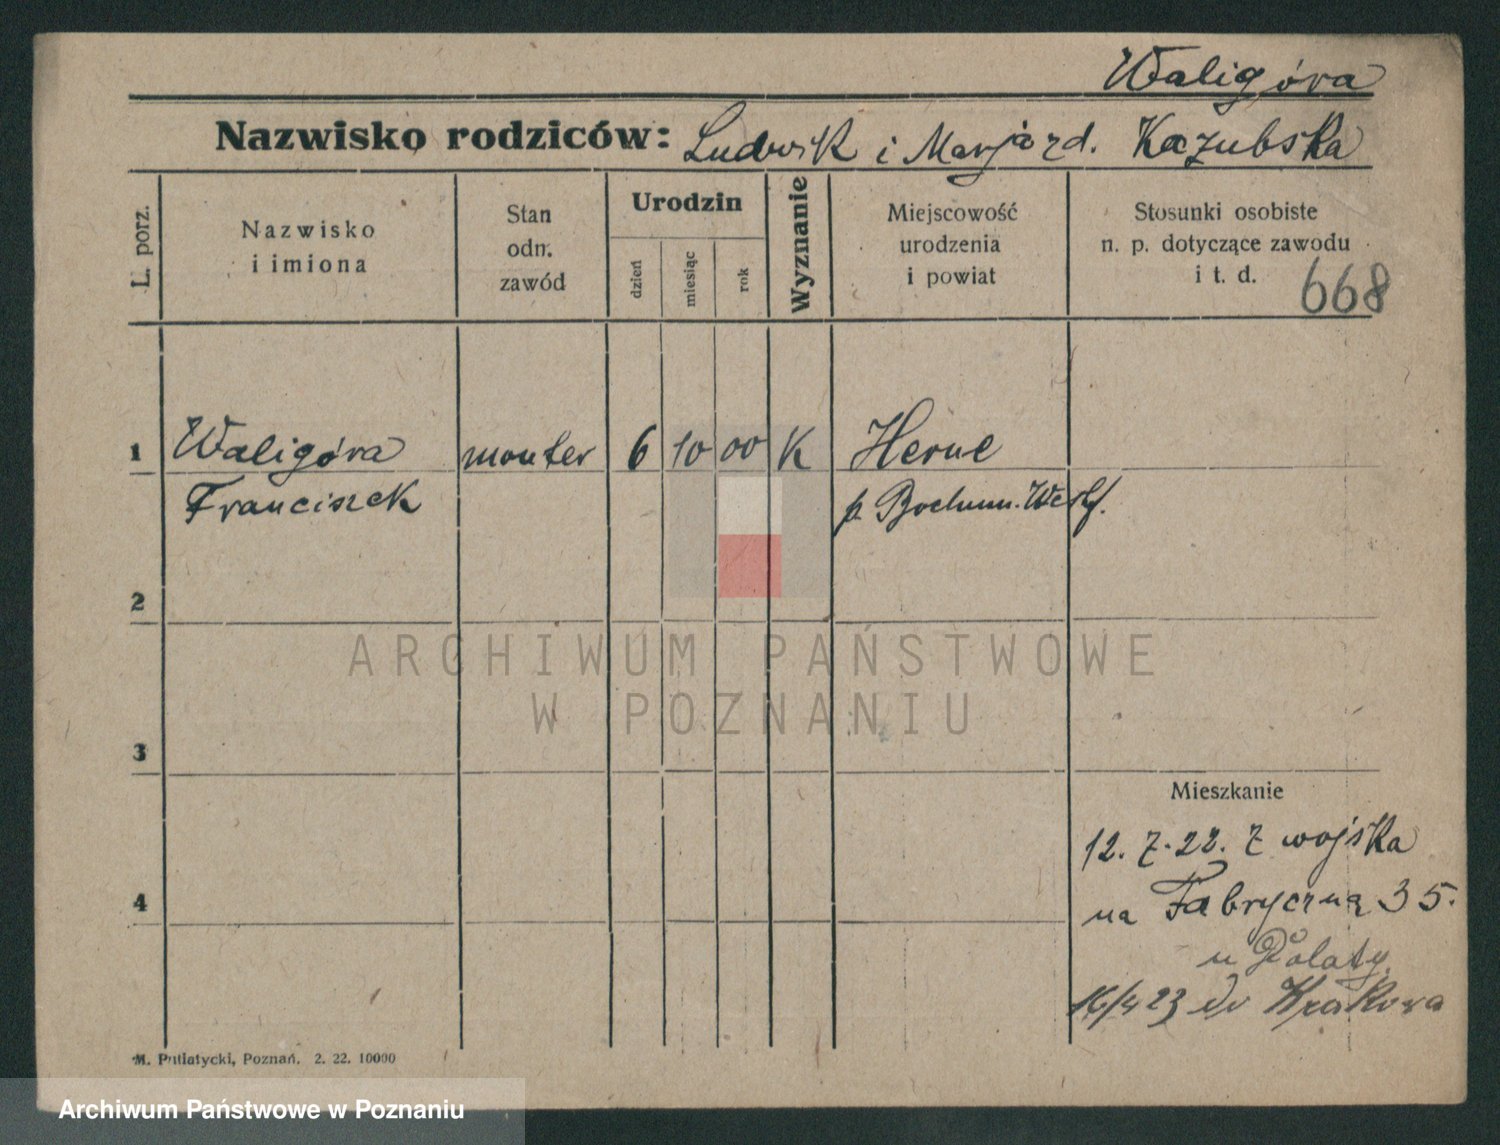 Waligóra
Nazwisko rodziców: Ludwik i Marja zd. Kazubska
L. porz.
Nazwisko
i imiona
Stan
odn.
zawód
Urodzin
dzień
miesiąc
rok
Wyznanie
Miejscowość
urodzenia
i powiat
Stosunki osobiste
n. p. dotyczące zawodu
i t. d.
668
1 Waligóra monter 6 10 00 K Herne
Franciszek p. Bochum. Westf.
2
3
4
Mieszkanie
12. 7. 22. z wojska
na Fabryczną 35.
u
16/4 23 do Krakowa
M. Putiatycki, Poznań. 2. 22. 10000
ARCHIWUM PAŃSTWOWE
W POZNANIU
Archiwum Państwowe w Poznaniu